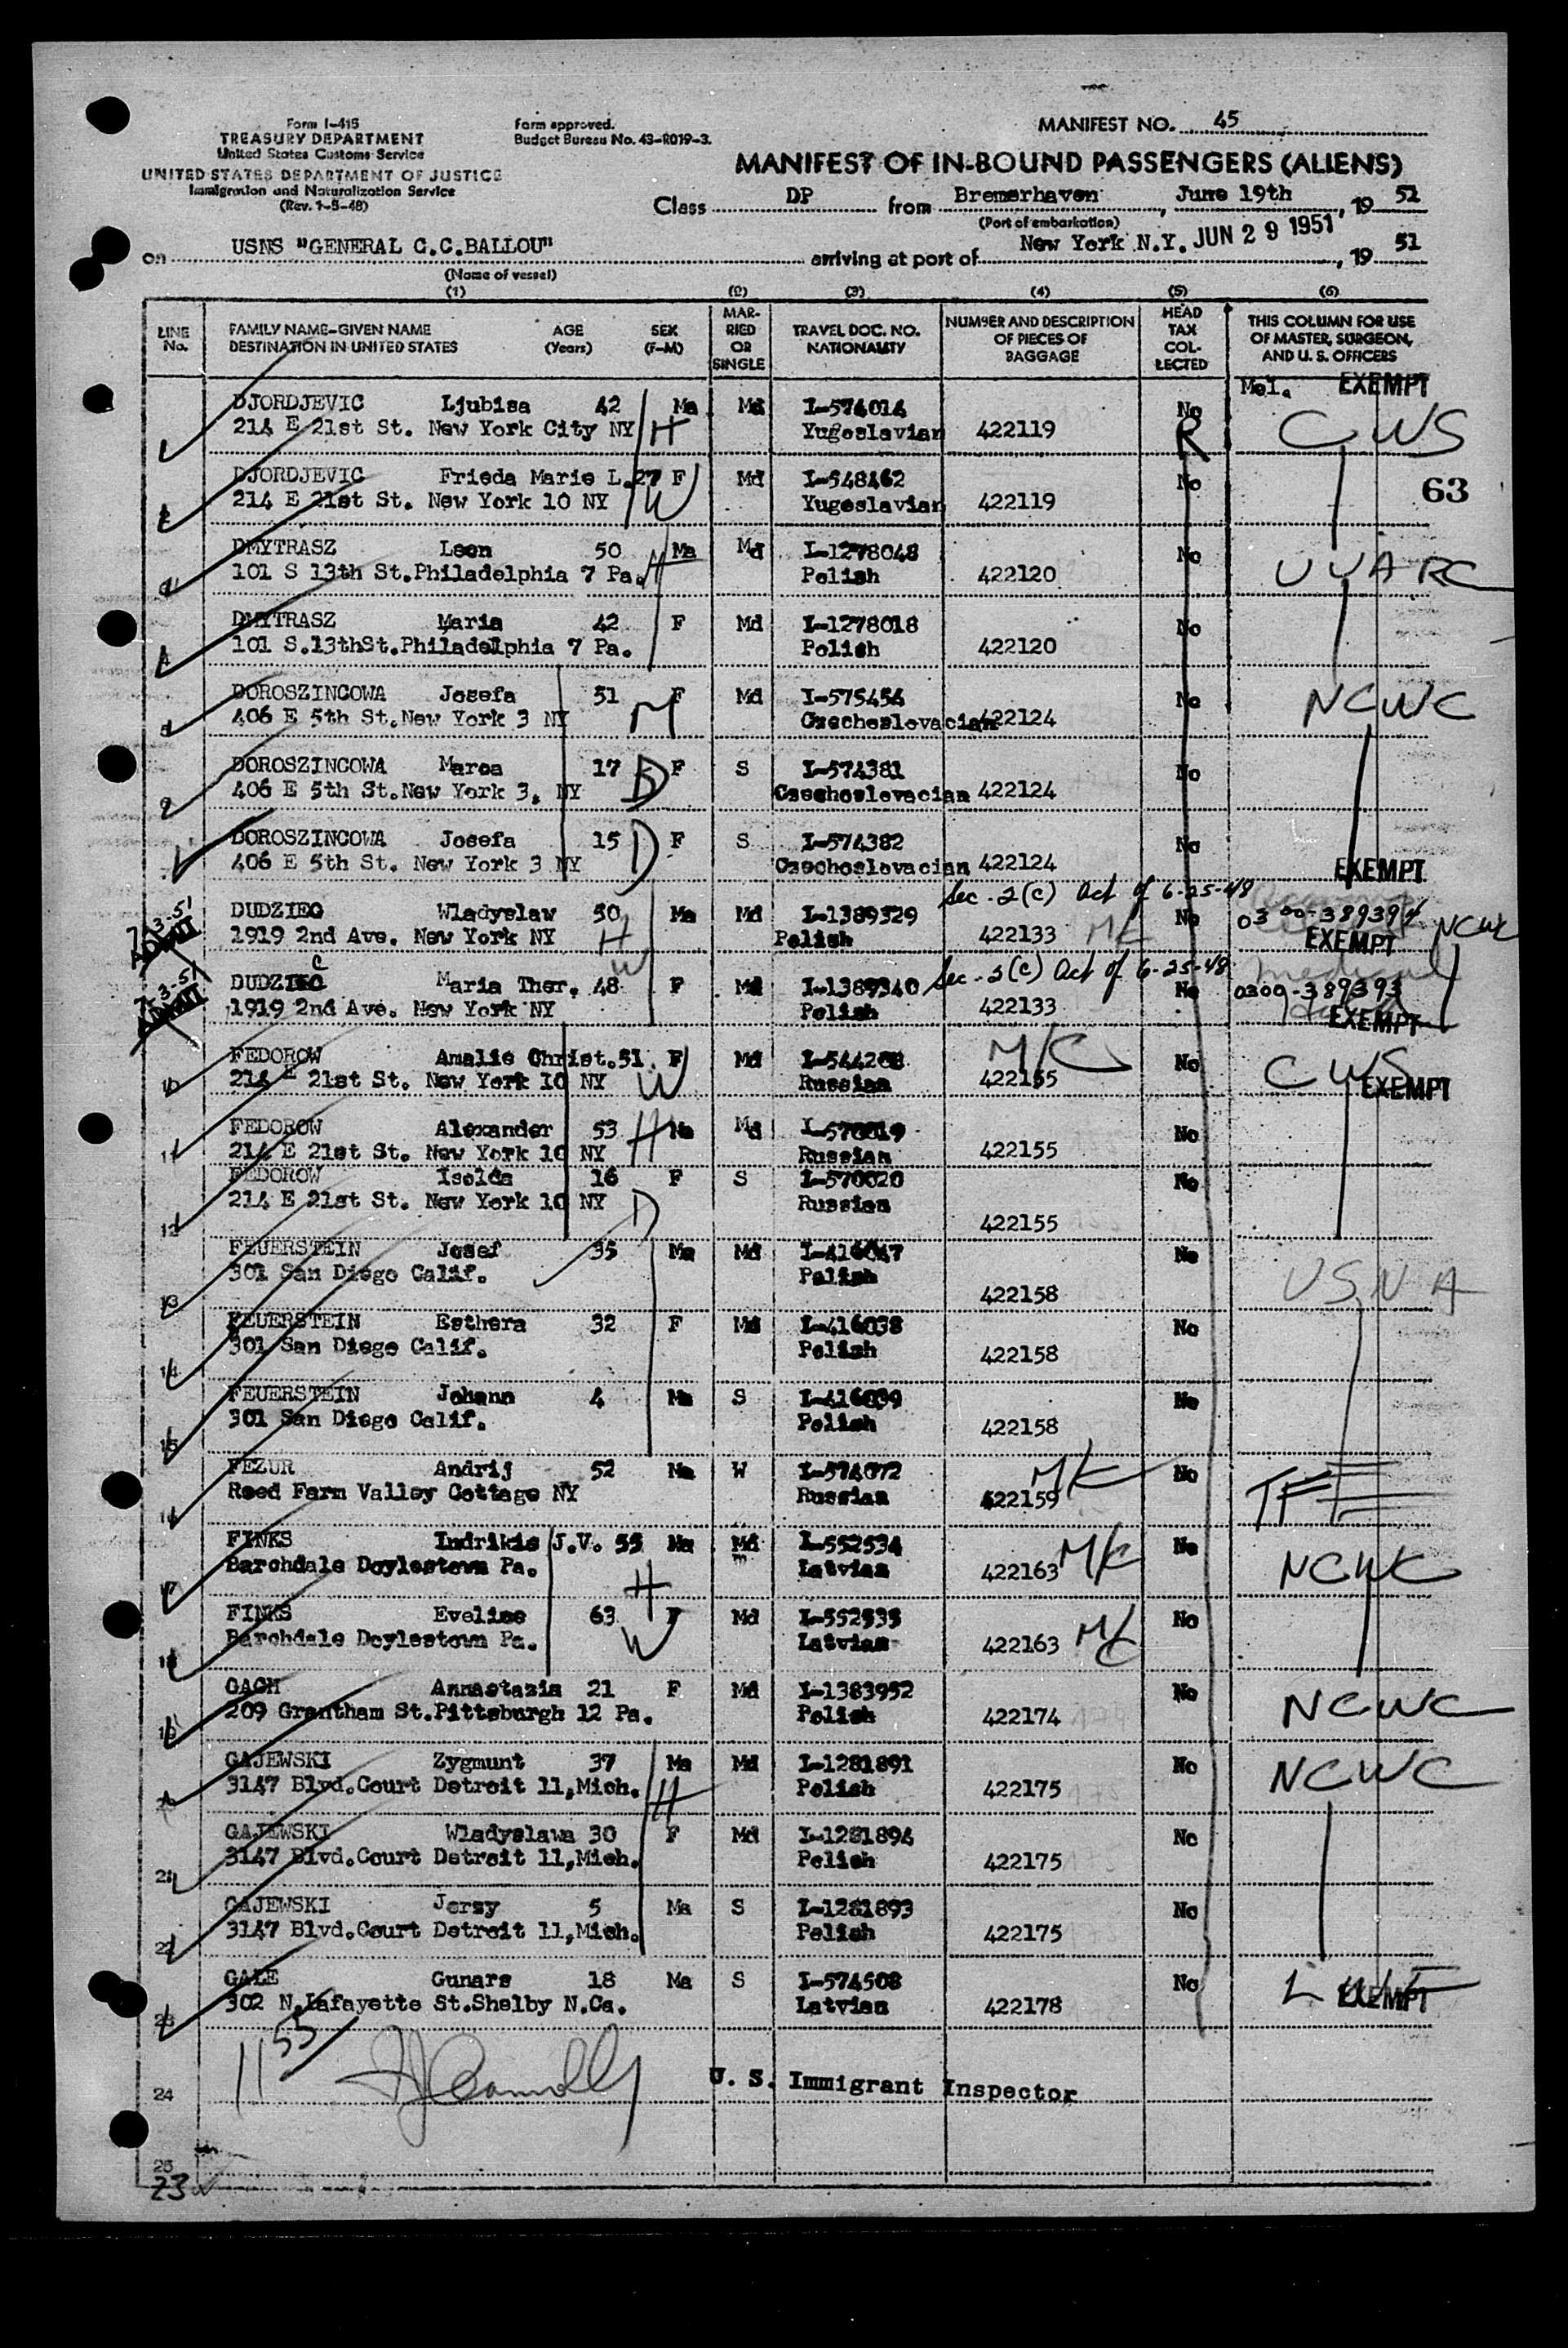 Form I-415
TREASURY DEPARTMENT
United States Customs Service
UNITED STATES DEPARTMENT OF JUSTICE
Immigration and Naturalization Service
(Rev. 1-5-48)
Form approved.
Budget Bureau No. 43-R019-3.
MANIFEST NO. 45
MANIFEST OF IN-BOUND PASSENGERS (ALIENS)
Class DP from Bremerhaven, June 19th, 19 51
(Port of embarkation)
on USNS "GENERAL C.C.BALLOU" arriving at port of New York N.Y. JUN 29 1951, 19 51
(Name of vessel)
(1) (2) (3) (4) (5) (6)
LINE No.
FAMILY NAME-GIVEN NAME DESTINATION IN UNITED STATES
AGE (Years)
SEX (F-M)
MARRIED OR SINGLE
TRAVEL DOC. NO. NATIONALITY
NUMBER AND DESCRIPTION OF PIECES OF BAGGAGE
HEAD TAX COLLECTED
THIS COLUMN FOR USE OF MASTER, SURGEON, AND U. S. OFFICERS
Mel. EXEMPT
DJORDJEVIC Ljubisa 42 Ma Md I-574014 No
1 214 E 21st St. New York City NY H Yugoslavian 422119 R CWS
DJORDJEVIC Frieda Marie L. 27 F Md I-548462 No 63
2 214 E 21st St. New York 10 NY W Yugoslavian 422119
DMYTRASZ Leon 50 Ma Md I-1278048 No
101 S 13th St.Philadelphia 7 Pa. H Polish 422120 UUARC
DMYTRASZ Maria 42 F Md I-1278018 No
4 101 S.13thSt.Philadelphia 7 Pa. Polish 422120
DOROSZINCOWA Josefa 51 F Md I-575454 No
406 E 5th St.New York 3 NY M Czechoslovacian 422124 NCWC
DOROSZINCOWA Marea 17 D F S I-574381 No
406 E 5th St.New York 3, NY Czechoslovacian 422124
DOROSZINCOWA Josefa 15 D F S I-574382 No
406 E 5th St. New York 3 NY Czechoslovacian 422124 EXEMPT
Sec. 2(c) Act of 6-25-48
7-3-51 ADMIT DUDZIEC Wladyslaw 50 Ma Md I-1389329 No 0300-389394 NCWC
1919 2nd Ave. New York NY H Polish 422133 EXEMPT
Sec. 2(c) Act of 6-25-48
7-3-51 ADMIT DUDZIEC Maria Ther. 48 W F Md I-1389340 No 0300-389393
1919 2nd Ave. New York NY Polish 422133 EXEMPT
FEDOROW Amalie Christ. 51 F Md I-544208 M/C No CWS
10 214 E 21st St. New York 10 NY W Russian 422155 EXEMPT
FEDOROW Alexander 53 H Ma Md I-570019 No
11 214 E 21st St. New York 10 NY Russian 422155
FEDOROW Isolda 16 F S I-570020 No
12 214 E 21st St. New York 10 NY D Russian 422155
FEUERSTEIN Josef 35 Ma Md I-416047 No
13 301 San Diego Calif. Polish 422158 USNA
FEUERSTEIN Esthera 32 F Md I-416038 No
14 301 San Diego Calif. Polish 422158
FEUERSTEIN Johann 4 Ma S I-416039 No
15 301 San Diego Calif. Polish 422158
FEZUR Andrij 52 Ma W I-574072 M/C No
16 Reed Farm Valley Cottage NY Russian 422159 TF
FINKS Indrikis J.V. 55 Ma Md I-552534 No
17 Barchdale Doylestown Pa. H Latvian 422163 M/C NCWC
FINKS Eveline 63 F Md I-552535 No
18 Barchdale Doylestown Pa. W Latvian 422163 M/C
GACH Annastazia 21 F Md I-1383952 No
19 209 Grantham St.Pittsburgh 12 Pa. Polish 422174 NCWC
GAJEWSKI Zygmunt 37 Ma Md I-1281891 No
3147 Blvd.Court Detroit 11,Mich. H Polish 422175 NCWC
GAJEWSKI Wladyslawa 30 F Md I-1281894 No
21 3147 Blvd.Court Detroit 11,Mich. Polish 422175
GAJEWSKI Jerzy 5 Ma S I-1281893 No
22 3147 Blvd.Court Detroit 11,Mich. Polish 422175
GALE Gunars 18 Ma S I-574508 No
23 302 N.Lafayette St.Shelby N.Ca. Latvian 422178 EXEMPT
11 55
24 U. S. Immigrant Inspector
25
23